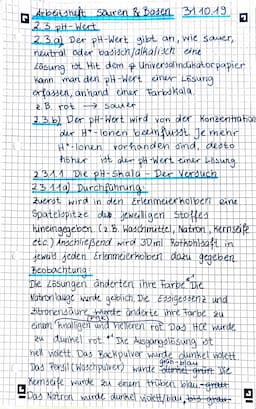 Arbeitsheft Säuren & Basen 31.10.19
2.3 pH-Wert
2.3.a) Der pH-Wert gibt an, wie sauer,
neutral oder basisch/alkalisch eine
Lösung ist. Mit dem Universalindikatorpapier
kann man den pH-Wert einer Lösung
erfassen, anhand einer Farbskala.
z.B. rot → sauer
2.3.b) Der pH-Wert wird von der Konzentration
der H⁺-Ionen beeinflusst. Je mehr
H⁺-Ionen vorhanden sind, desto
höher ist der pH-Wert einer Lösung
2.3.1.1 Die pH-Skala - Der Versuch
2.3.1.1a) Durchführung:
Zuerst wird in den Erlenmeierkolben eine
Spatelspitze des jeweiligen Stoffes
hineingegeben (z.B. Waschmittel, Natron, Kernseife
etc.) Anschließend wird 30ml Rotkohlsaft in
jeweils jeden Erlenmeierkolben dazu gegeben
Beobachtung:
Die Lösungen änderten ihre Farbe. Die
Natronlauge wurde gelblich. Die Essigessenz und
Zitronensäure wurde änderte ihre Farbe zu
einem knalligen und helleren rot. Das HCl wurde
zu dunkel rot. Die Ausgangslösung ist
hell violett. Das Backpulver wurde dunkel violett.
grün-blau
Das Persil (Waschpulver) wurde dunkel grün. Die
Kernseife wurde zu einem trüben blau-grau
Das Natron wurde dunkel violett/blau, bis grau.